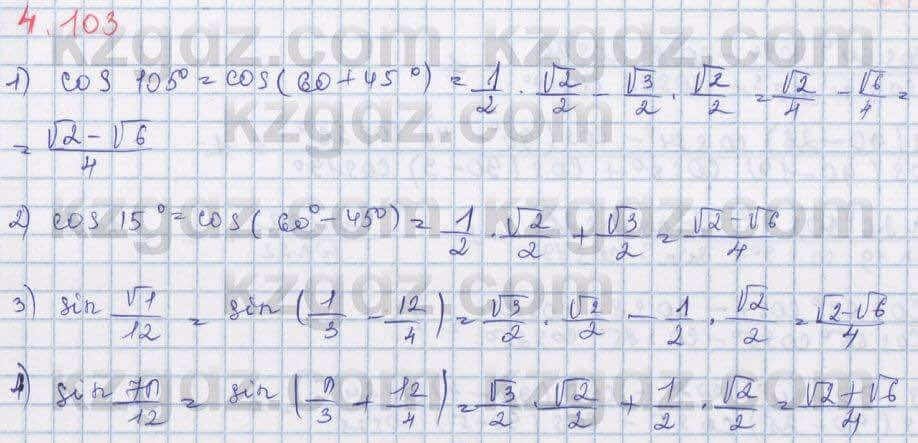 4.103
kzgdz.com kzgdz.com
1) cos 105° = cos(60 + 45°) = 1/2 · √2/2 - √3/2 · √2/2 = √2/4 - √6/4 =
kzgdz.com
= (√2 - √6)/4
2) cos 15° = cos(60° - 45°) = 1/2 · √2/2 + √3/2 = (√2 - √6)/4
kzgdz.com kzgdz.com
kzgdz.com
3) sin √1/12 = sin (1/3 - 12/4) = √3/2 · √2/2 - 1/2 · √2/2 = (√2 - √6)/4
kzgdz.com kzgdz.com
4) sin 7π/12 = sin (π/3 + 12/4) = √3/2 · √2/2 + 1/2 · √2/2 = (√2 + √6)/4